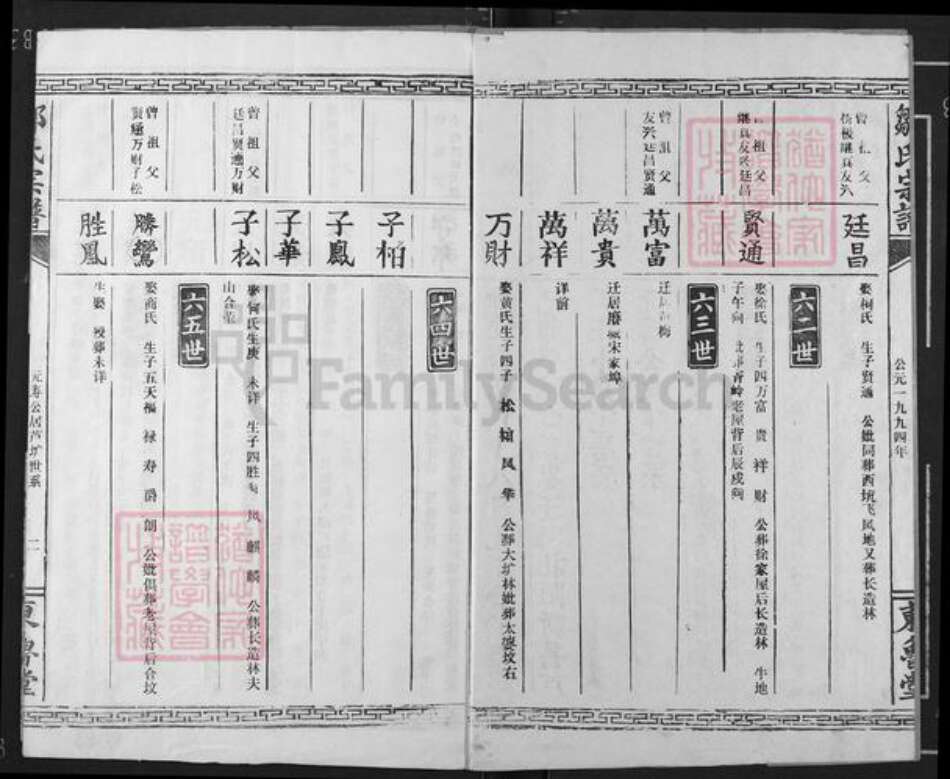 鄒氏宗譜
公元一九九四年
東魯堂
曾祖父
继真友兴
廷昌
娶柯氏 生子贤通 公妣同葬西坑飞凤地又葬长造林
六二世
曾祖父
继真友兴廷昌
賢通
娶徐氏 生子四万富 贵 祥 财 公葬徐家屋后长造林 牛地
子午向 老屋背后辰戌向
六三世
曾祖父
友兴廷昌贤通
萬富
萬貴
迁居 宋家埠
萬祥
详前
万財
娶黄氏生子四子 松 柏 凤 华 公葬大圹林妣葬太婆坟右
六四世
子柏
子鳳
子華
曾祖父
廷昌贤通万财
子松
娶何氏生庚 未详 生子四胜 凤 麒 麟 公葬长造林夫
山合
六五世
曾祖父
贤通万财子松
勝鸞
娶商氏 生子五天福 禄 寿 爵 朗 公妣俱葬老屋背后合坟
胜鳳
生娶 殁葬未详
氏宗譜
元寿公居芦圹世系
二
東魯堂
FamilySearch